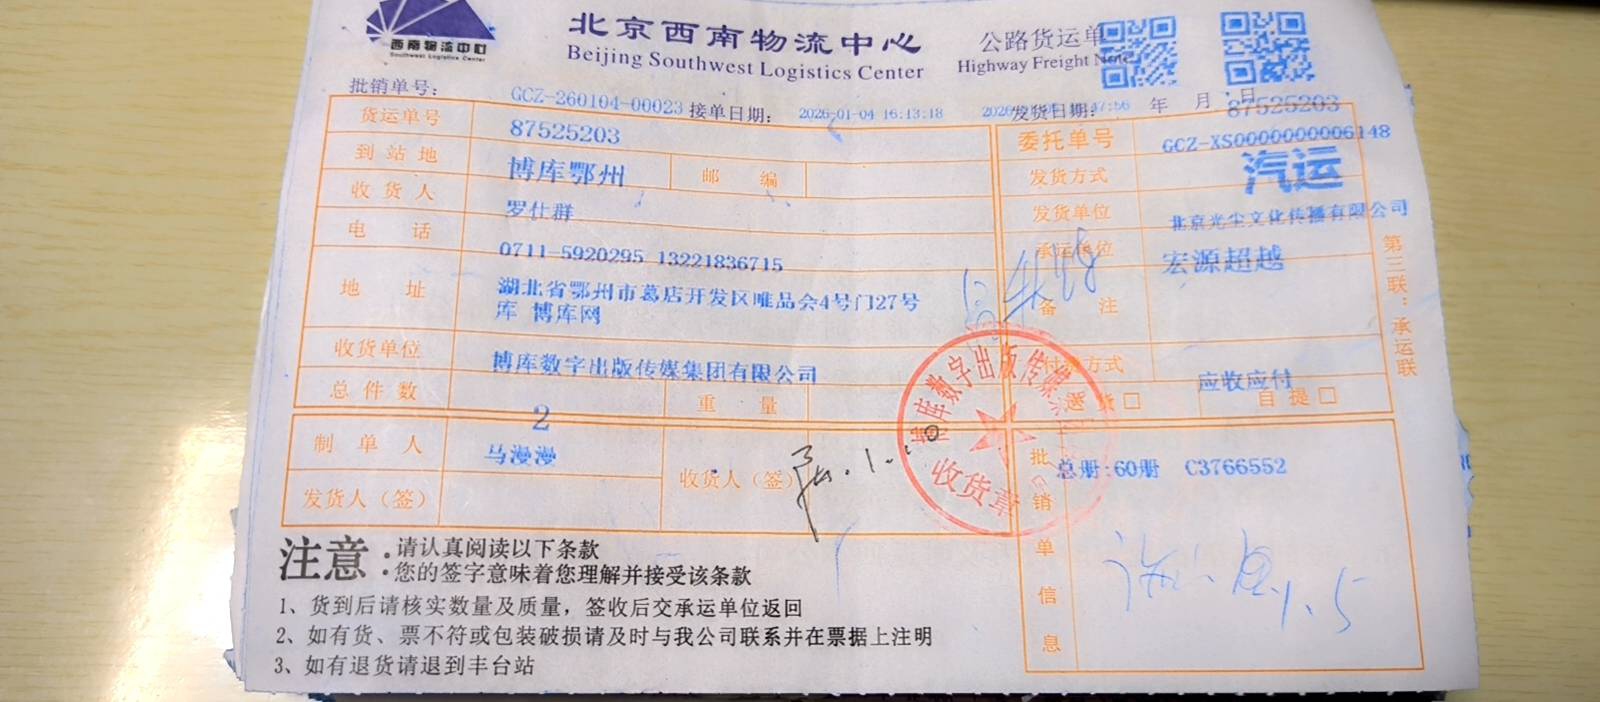 西南物流中心
Southwest Logistics Center
北京西南物流中心
Beijing Southwest Logistics Center
公路货运单
Highway Freight Note
批销单号: GCZ-260104-00023 接单日期: 2026-01-04 16:13:18 发货日期: 年 月 日
87525203
货运单号 87525203 委托单号 GCZ-XS0000000006148
到站地 博库鄂州 邮编 发货方式 汽运
收货人 罗仕群 发货单位 北京光尘文化传播有限公司
电话 0711-5920295 13221836715 承运单位 宏源超越
地址 湖北省鄂州市葛店开发区唯品会4号门27号
库 博库网 备注
收货单位 博库数字出版传媒集团有限公司 付款方式 应收应付
总件数 2 重量 送货□ 自提□
制单人 马漫漫 收货人（签）
发货人（签）
批销单信息 总册:60册 C3766552
1.5
博库数字出版传媒
收货章
第三联：承运联
注意：请认真阅读以下条款
您的签字意味着您理解并接受该条款
1、货到后请核实数量及质量，签收后交承运单位返回
2、如有货、票不符或包装破损请及时与我公司联系并在票据上注明
3、如有退货请退到丰台站